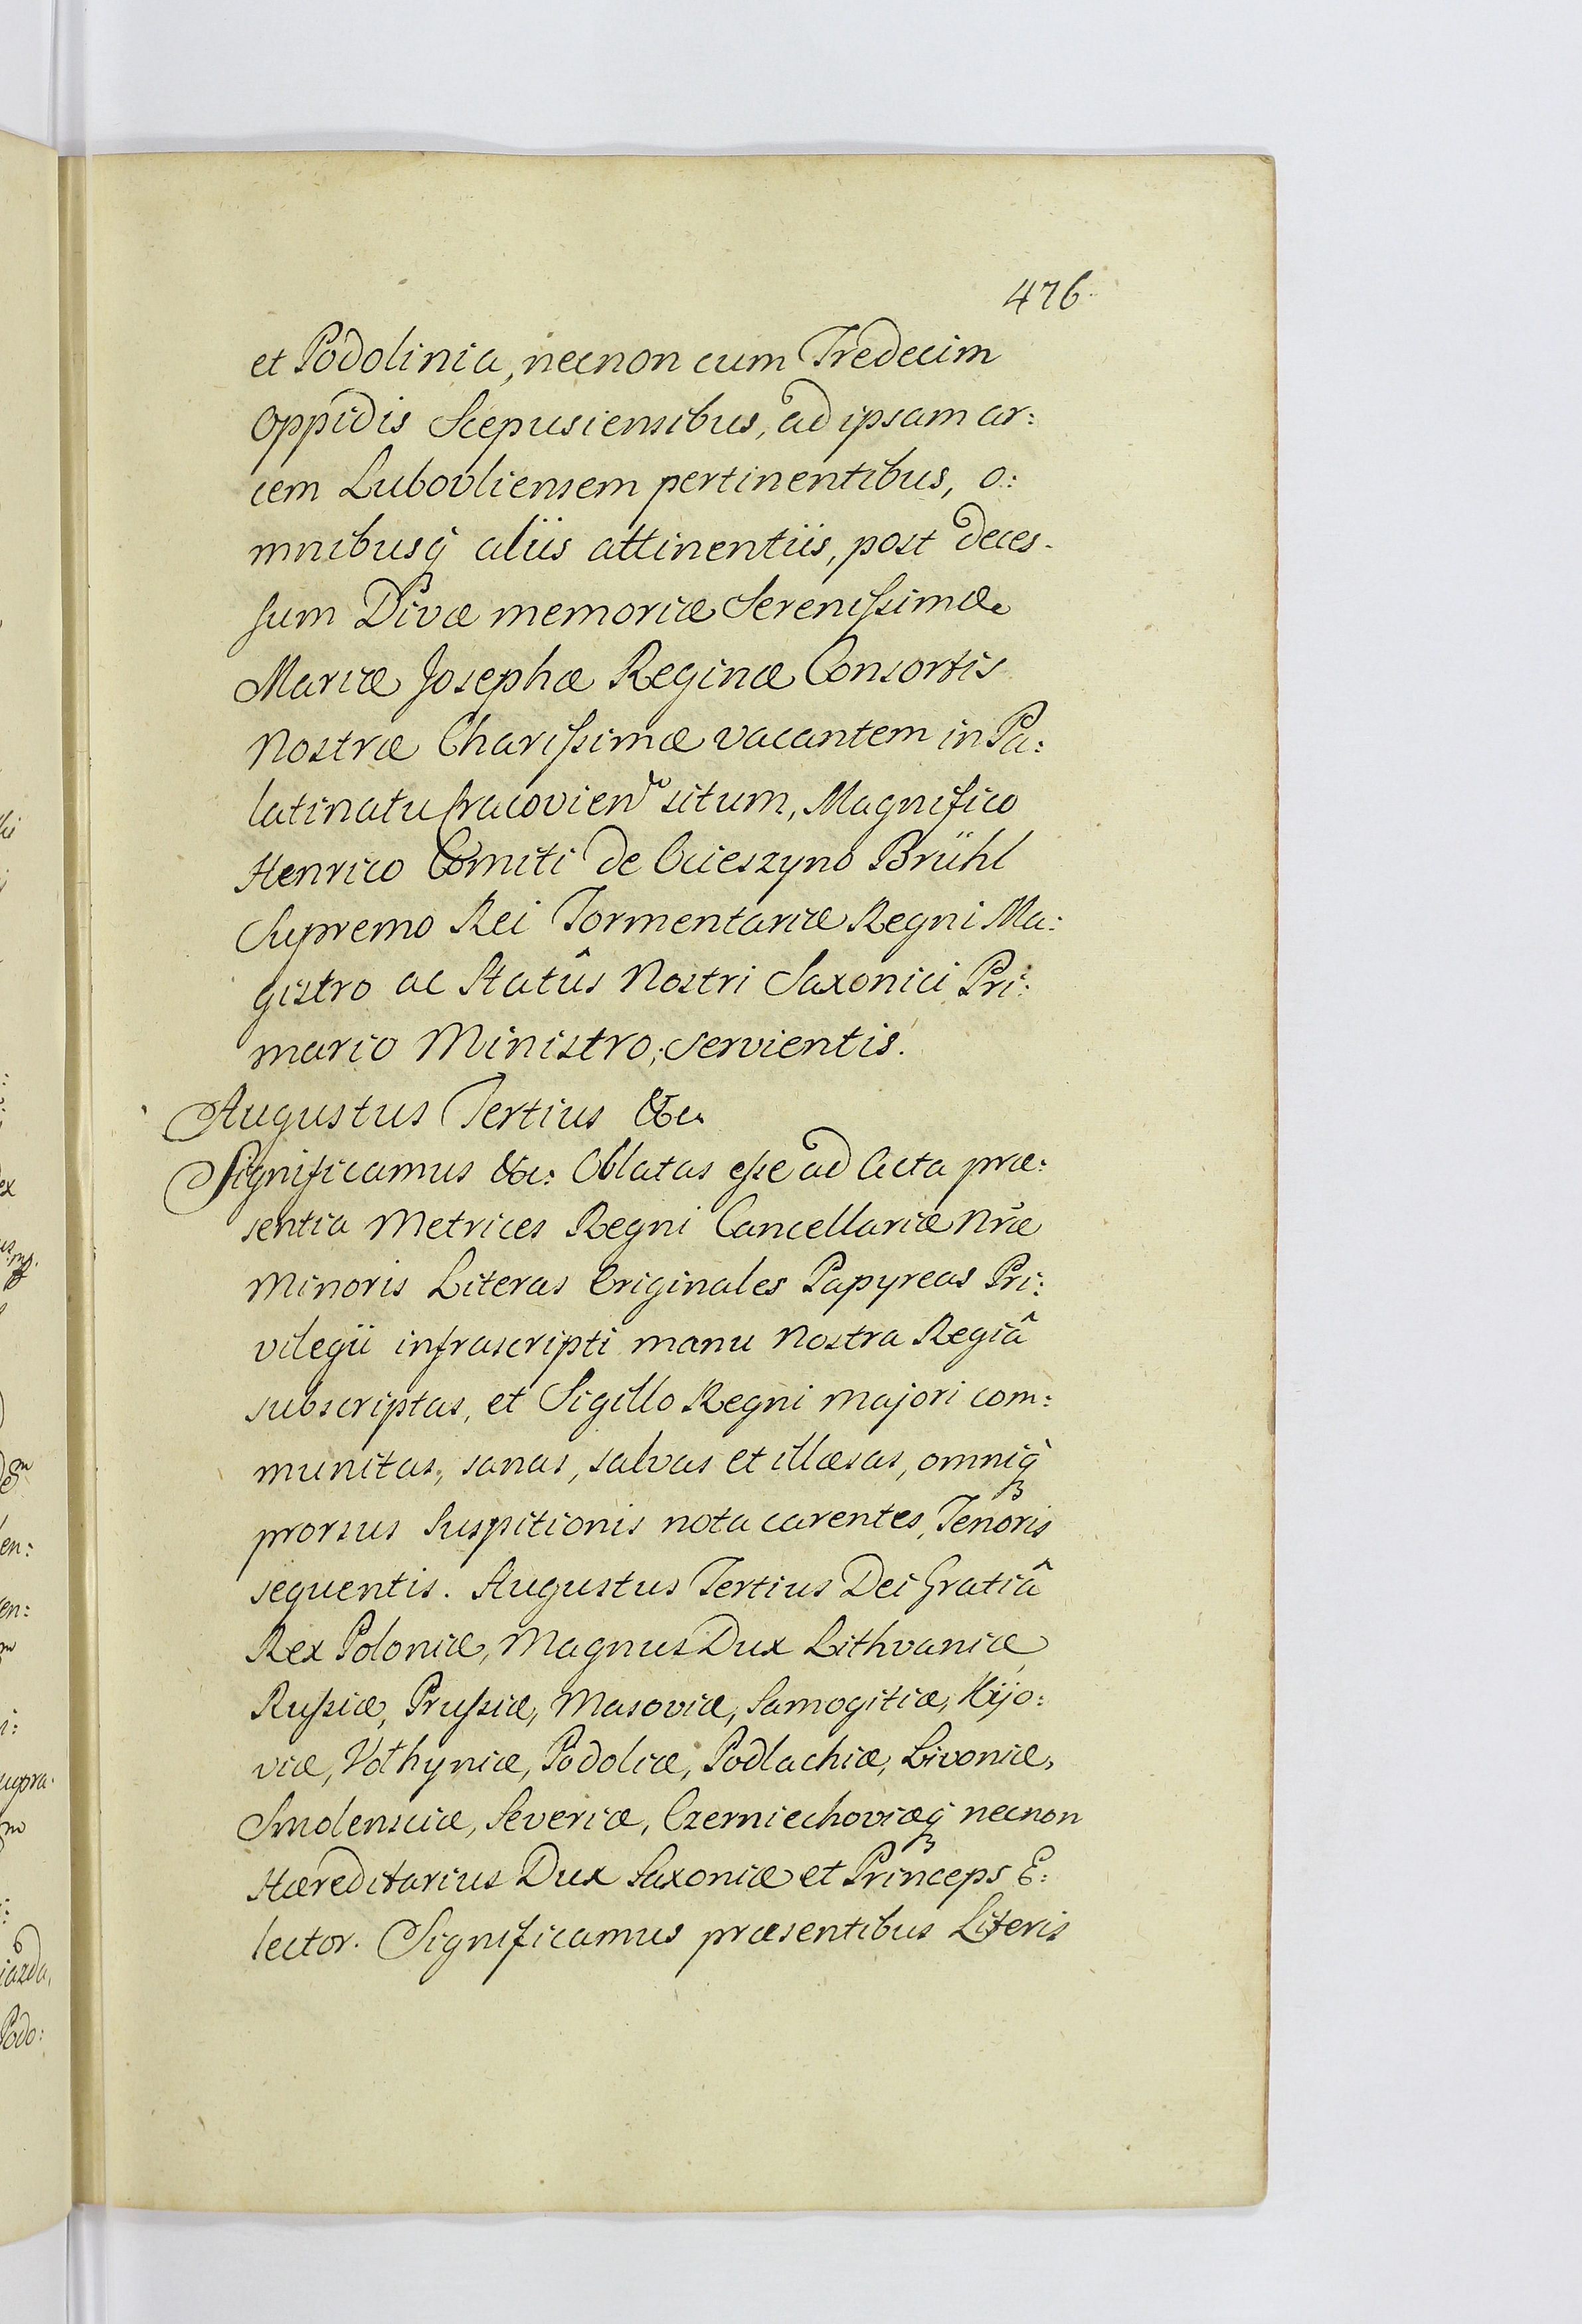 476
et Podolinia, necnon cum Tredecim
Oppidis Scepusiensibus, ad ipsam ar:
cem Lubovliensem pertinentibus, o:
mnibusq̃ aliis attinentiis, post deces-
sum Divæ memoriæ Serenissimæ
Mariæ Josephæ Reginæ Consortis
Nostræ Charissimæ vacantem in Pa:
latinatu Cracovien situm, Magnifico
Henrico Comiti de Ocieszyno Brühl
Supremo Rei Tormentariæ Regni Ma:
gistro ac Statûs Nostri Saxonici Pri:
mario Ministro, servientis.
Augustus Tertius &c.
Significamus &c: Oblatas esse ad Acta præ:
sentia Metrices Regni Cancellariæ Nræ
Minoris Literas Originales Papyreas Pri:
vilegii infrascripti manu Nostra Regiâ
subscriptas, et Sigillo Regni Majori com:
munitas, sanas, salvas et illæsas, omniq̃
prorsus Suspitionis nota carentes, Tenoris
sequentis. Augustus Tertius Dei Gratiâ
Rex Poloniæ, Magnus Dux Lithvaniæ
Russiæ, Prussiæ, Masoviæ, Samogitiæ, Kijo:
viæ, Volhyniæ, Podoliæ, Podlachiæ, Livoniæ,
Smolensciæ, Severiæ, Czerniechoviæq̃ necnon
Hæreditarius Dux Saxoniæ et Princeps E:
lector. Significamus præsentibus Literis